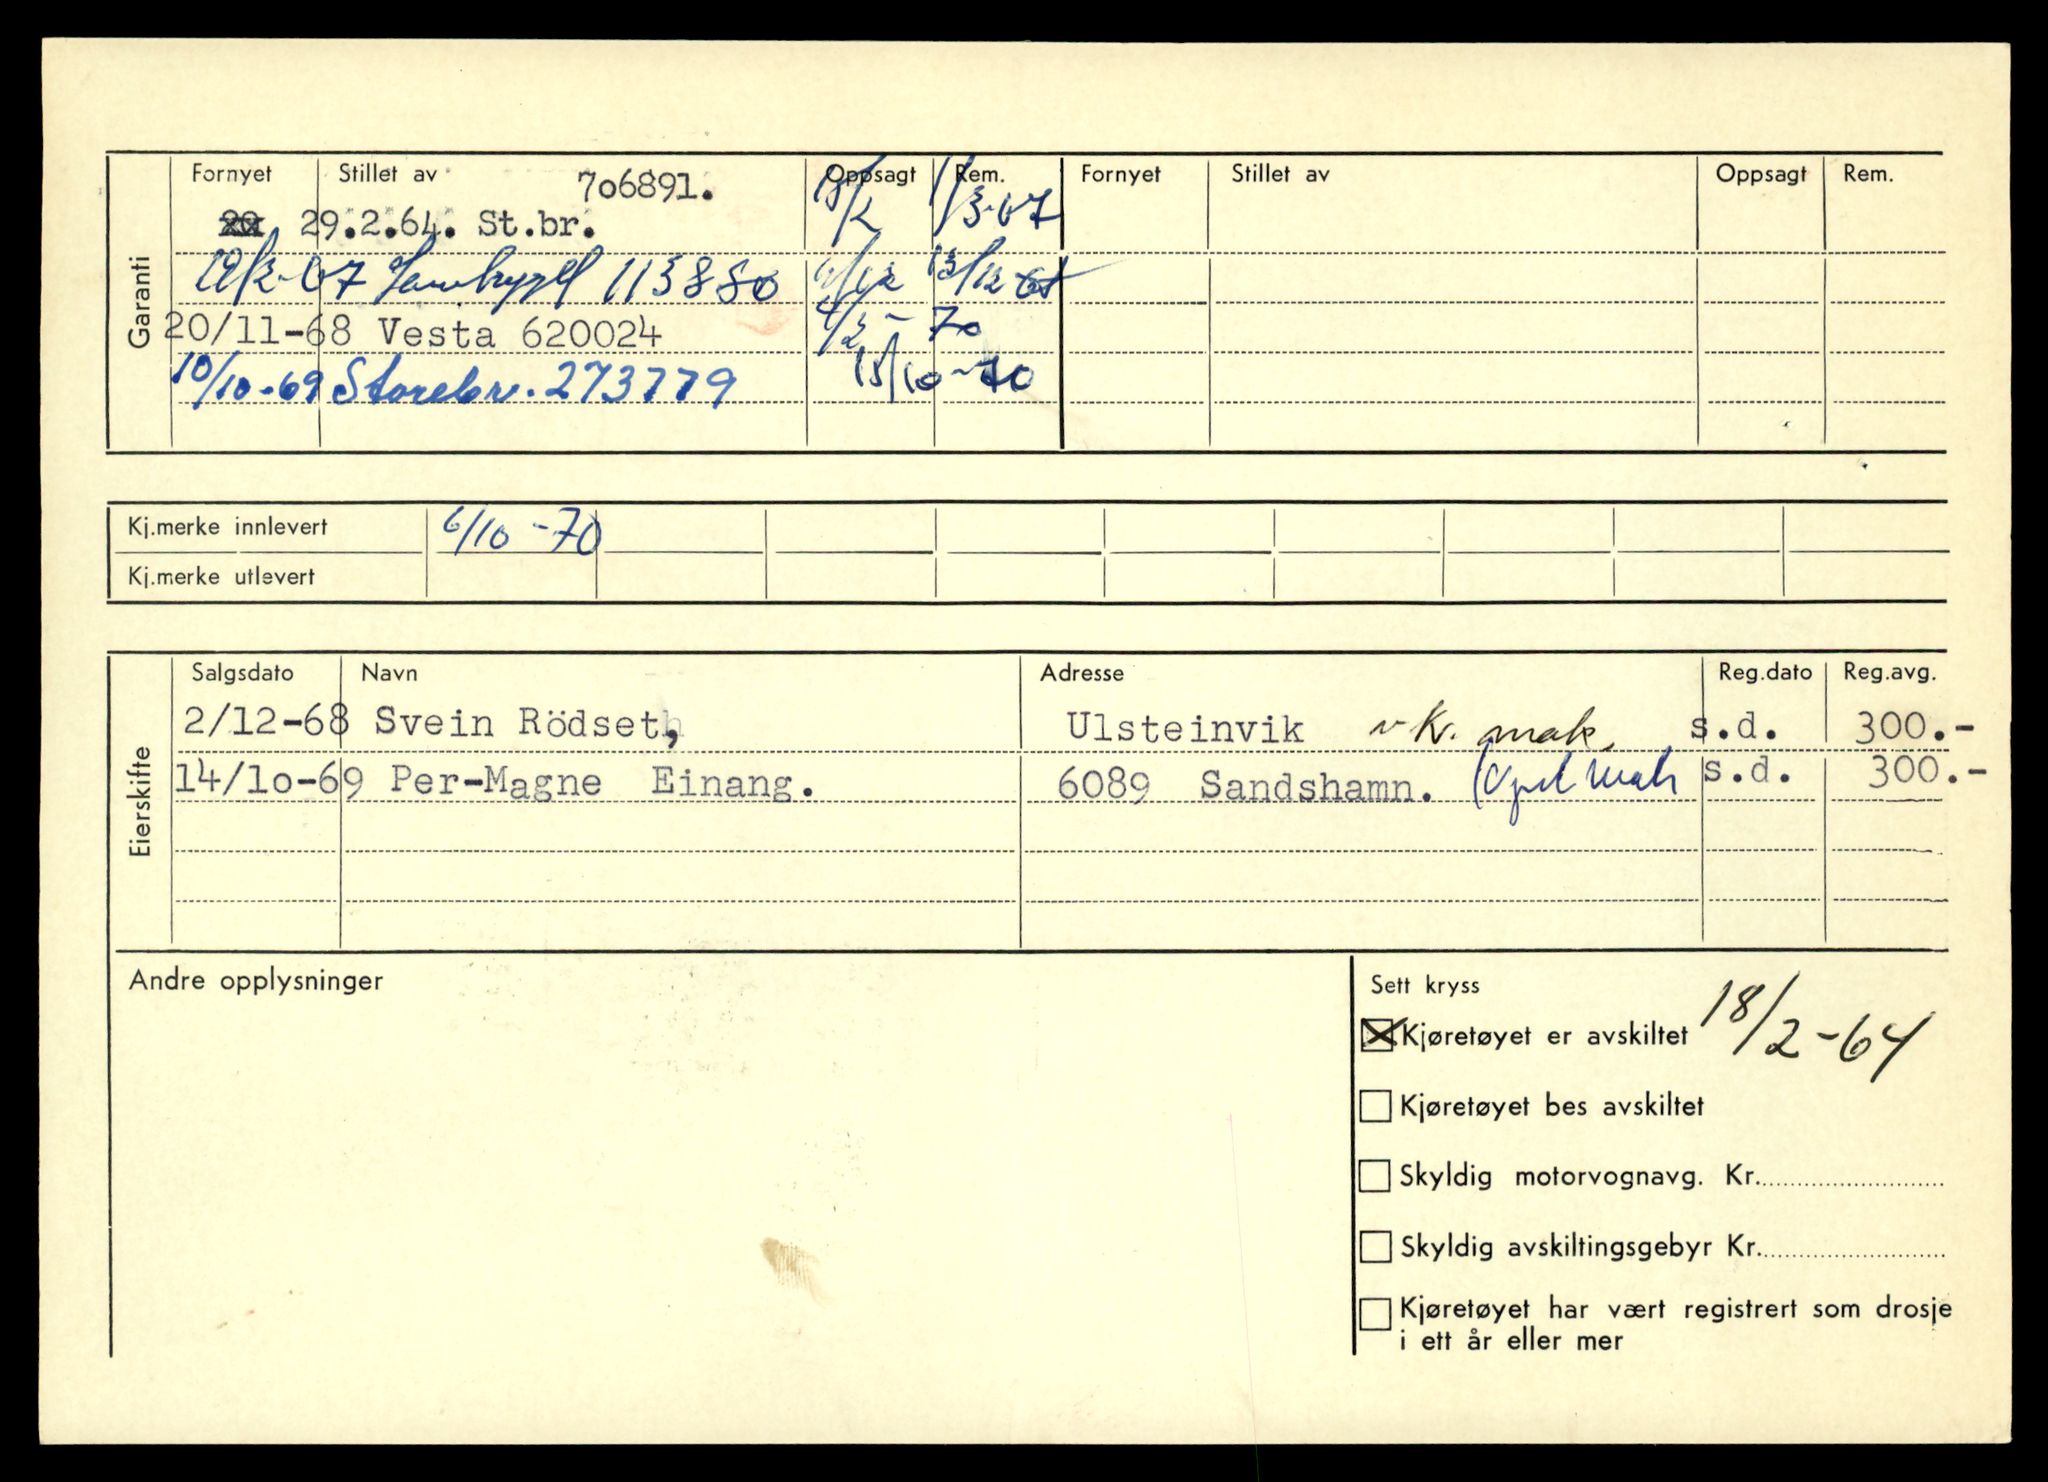 Garanti
Fornyet Stillet av Oppsagt Rem. Fornyet Stillet av Oppsagt Rem.
706891. 18/2 1/3-67
29.2.64. St.br.
113880
20/11-68 Vesta 620024 70
10/10-69 Storebr. 273779 15/10-70
Kj.merke innlevert 6/10-70
Kj.merke utlevert
Eierskifte
Salgsdato Navn Adresse Reg.dato Reg.avg.
2/12-68 Svein Rödseth, Ulsteinvik v Kr. mak. s.d. 300.-
14/10-69 Per-Magne Einang. 6089 Sandshamn. s.d. 300.-
Andre opplysninger
Sett kryss
Kjøretøyet er avskiltet 18/2-64
Kjøretøyet bes avskiltet
Skyldig motorvognavg. Kr.
Skyldig avskiltingsgebyr Kr.
Kjøretøyet har vært registrert som drosje
i ett år eller mer